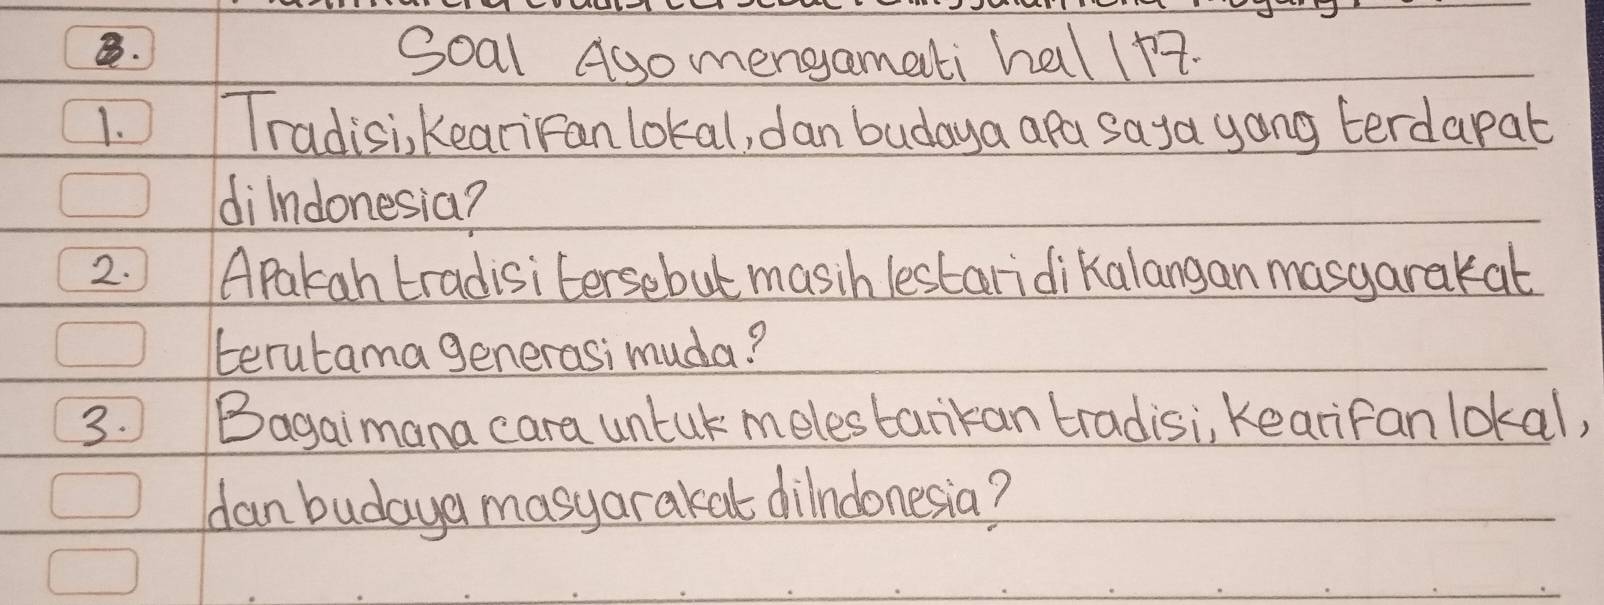 B. Soal Ayo mengamati hal 117.
1. Tradisi, kearifan lokal, dan budaya apa saya yang terdapat
di Indonesia?
2. Apakah tradisi tersebut masih lestari di kalangan masyarakat
terutama generasi muda?
3. Bagaimana cara untuk melestarikan tradisi, kearifan lokal,
dan budaya masyarakat di Indonesia?